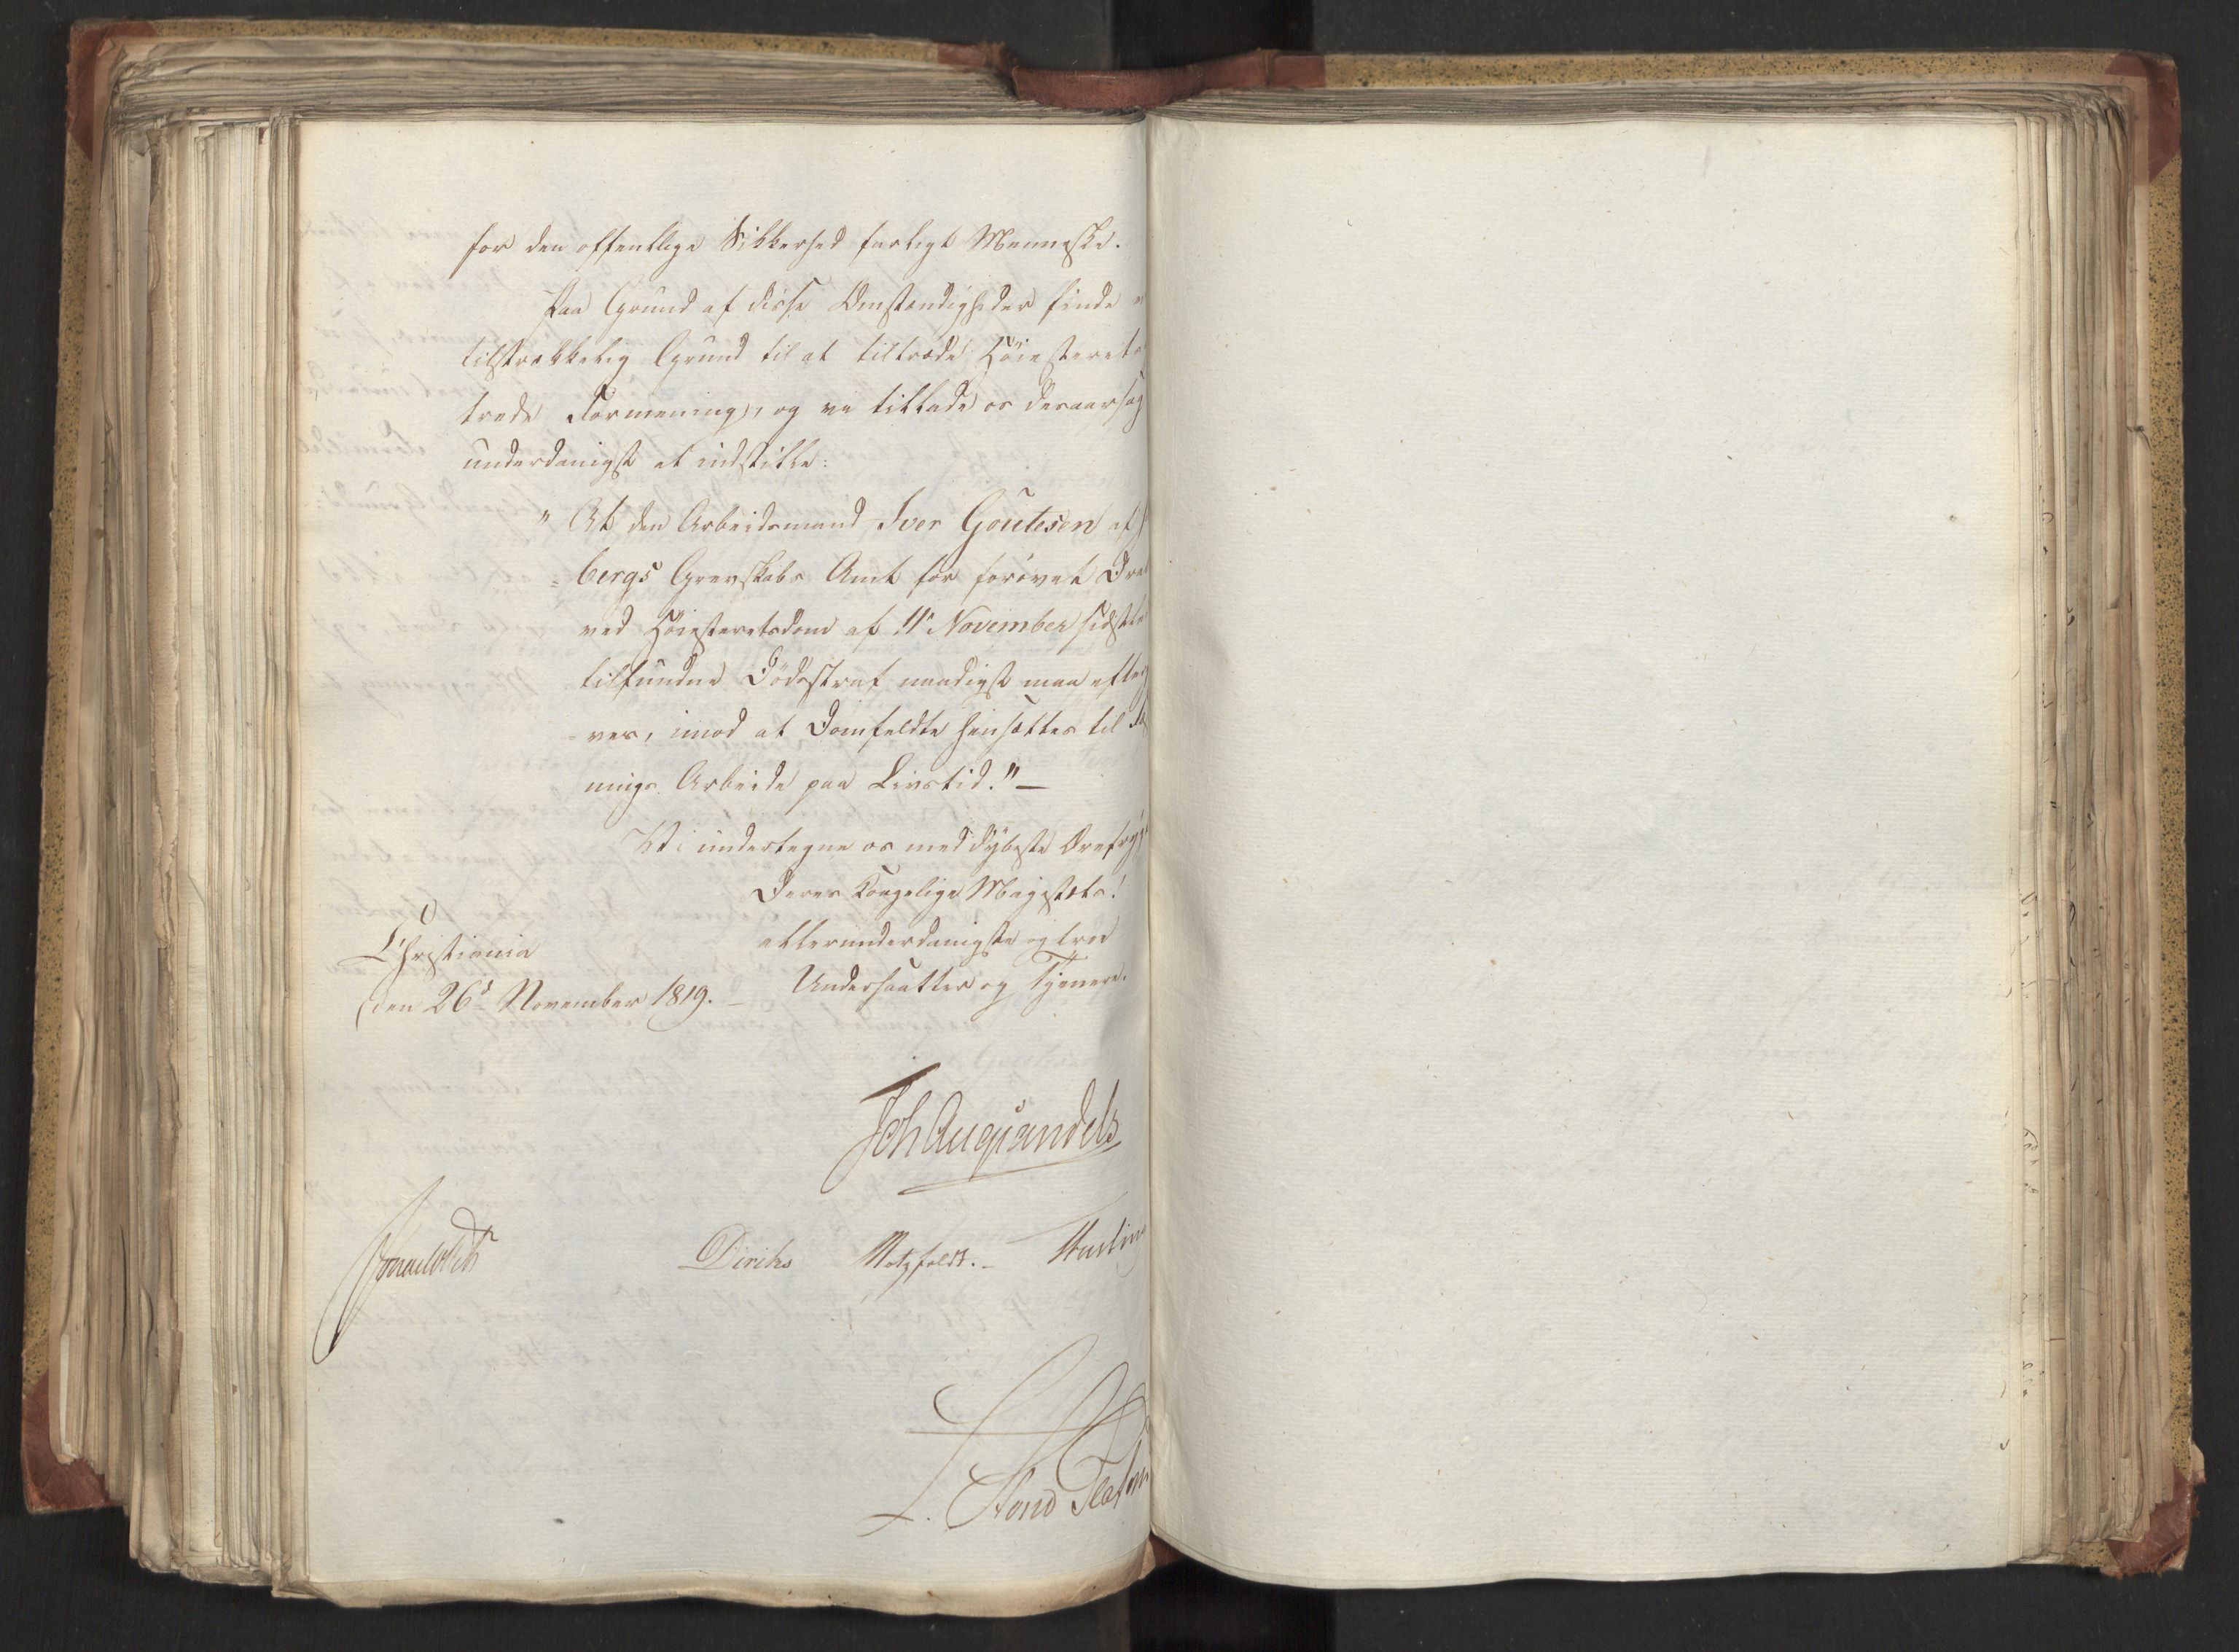 for den offentlige Sikkerhed farligt Menneske.
Paa Grund af disse Omstændigheder finde
tilstrækkelig Grund til at tiltræde Höiesterets
trede Formening, og vi tillade os desaarsag
underdanigst at indstille:
" At den Arbeidsmand Iver Goutesen af
= bergs Grevskabs Amt for forövet Dra
ved Höiesteretsdom af 11te November sidstl
tilfundne Dödsstraf naadigst maa efter
= ves, imod at Domfeldte hensættes til
nings Arbeide paa Livstid." —
Vi undertegne os med dybeste Ærefrygt
Deres Kongelige Majestæts!
allerunderdanigste og troe
Undersaatter og Tjenere.
Christiania
den 26d November 1819. —
Joh Aug Sandels
Sommerhielm
Diriks Motzfeldt. —
L.